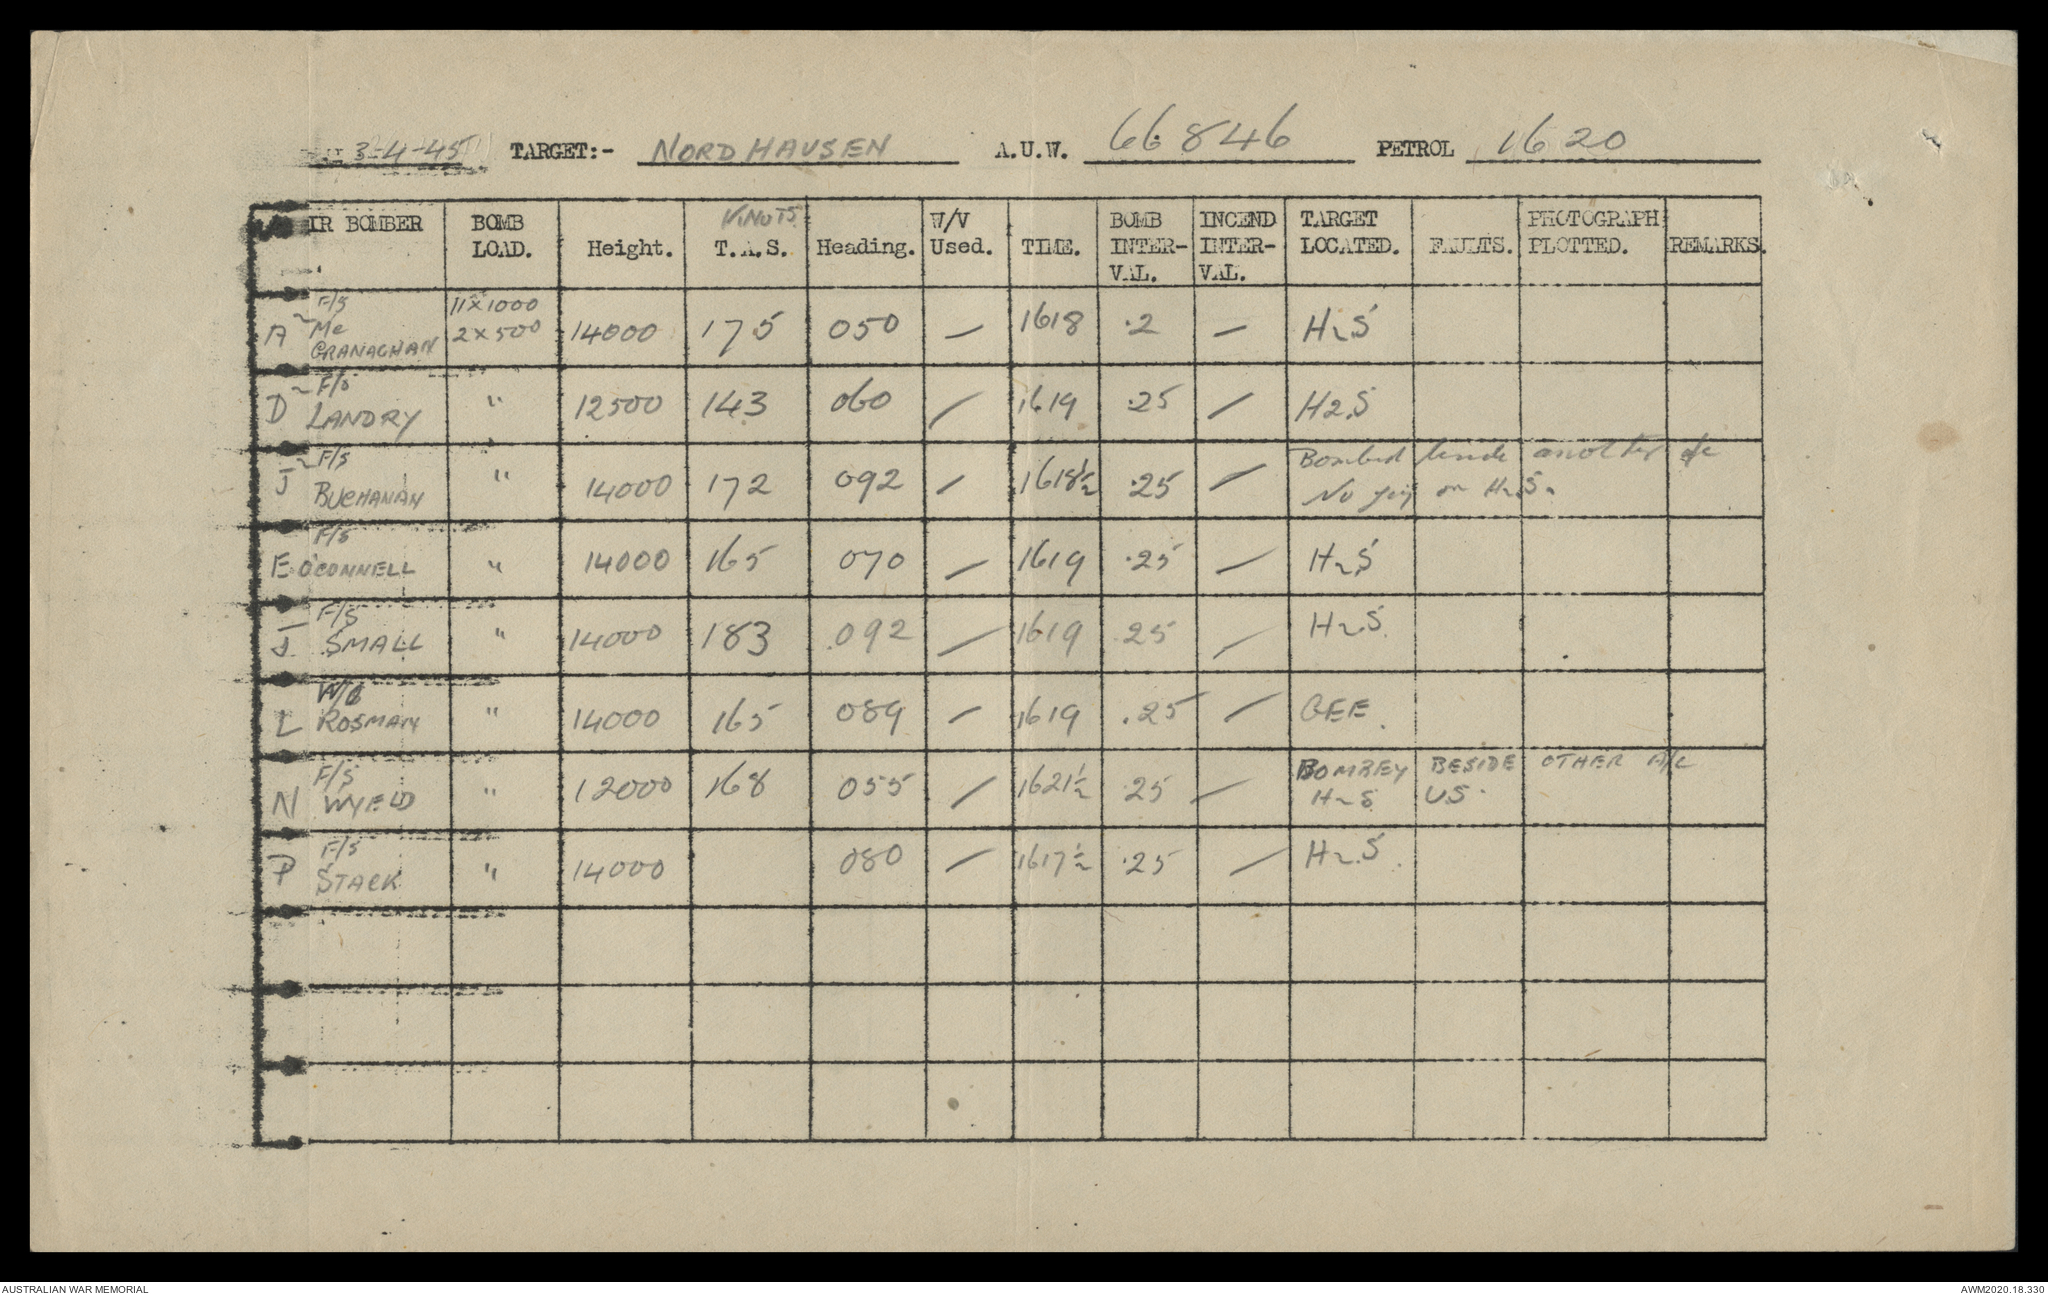 3-4-45 TARGET:- NORDHAUSEN A.U.W. 66846 PETROL 1620
KNOTS
IR BOMBER BOMB LOAD. Height. T.A.S. Heading. W/V Used. TIME. BOMB INTER-VAL. INCEND INTER-VAL. TARGET LOCATED. FAULTS. PHOTOGRAPH PLOTTED. REMARKS.
A F/S Mc GRANAGHAN 11x1000 2x500 14000 175 050 — 1618 .2 — H2S
D F/O LANDRY " 12500 143 060 / 1619 .25 / H2S
J F/S BUCHANAN " 14000 172 092 / 1618½ .25 / Bombed beside another a/c
No on H2S.
E F/S O'CONNELL " 14000 165 070 / 1619 .25 / H2S
J F/S SMALL " 14000 183 092 / 1619 25 / H2S.
L ROSMAN " 14000 165 089 / 1619 .25 / GEE.
N F/S WYELD " 12000 168 055 / 1621½ 25 / BOMBEY BESIDE OTHER A/C
H2S US.
P F/S STACK " 14000 080 / 1617½ .25 / H2S.
AUSTRALIAN WAR MEMORIAL AWM2020.18.330